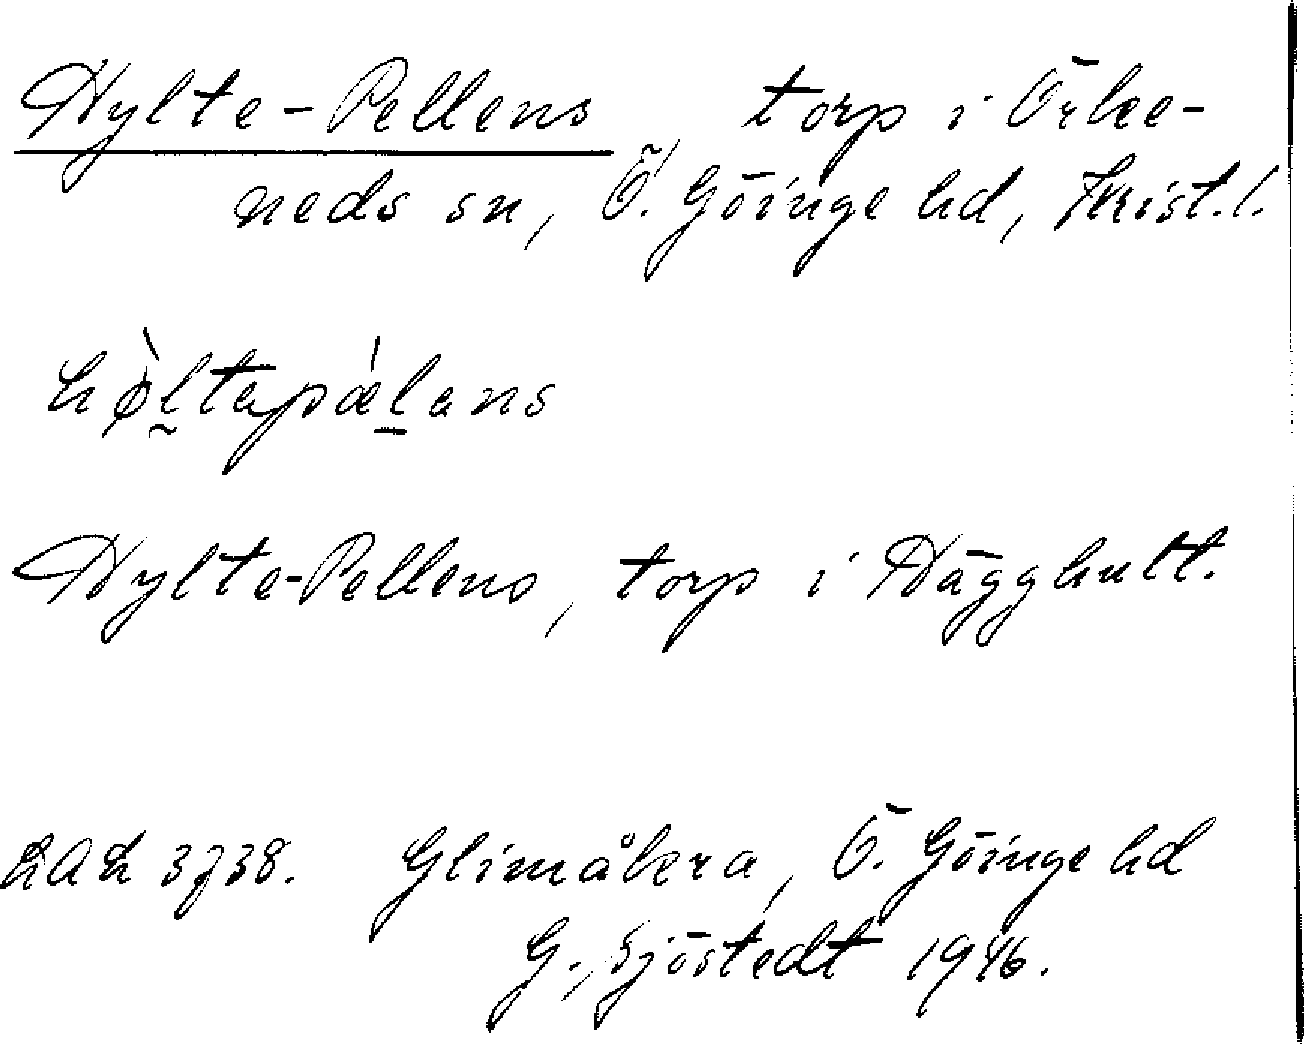 Hylte-Pellens, torp i Örke-
neds sn, Ö. Göinge hd, Krist. l.
hø̀ltapǽlans
Hylte-Pellens, torp i Hägghult.
LAL 3738. Glimåkra, Ö. Göinge hd
G. Sjöstedt 1946.